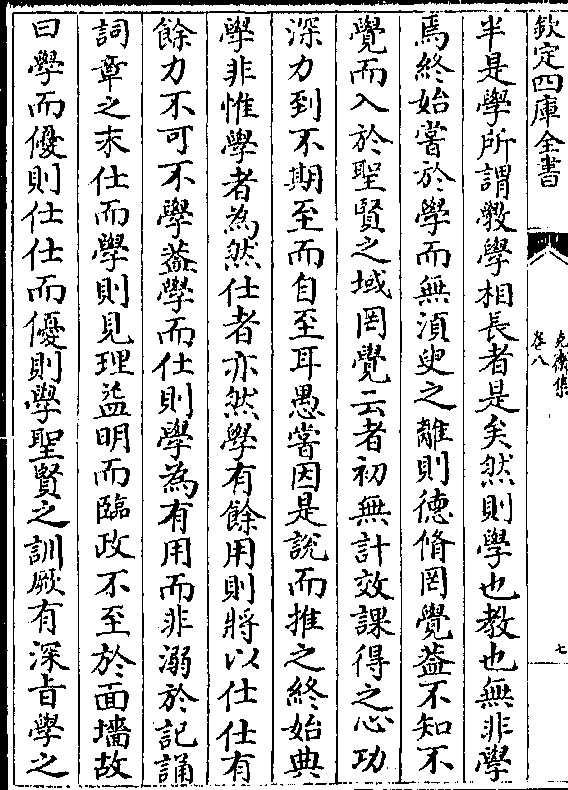 欽定四庫全書
克齋集
卷八
七
半是學所謂斆學相長者是矣然則學也教也無非學
焉終始嘗於學而無湏臾之離則德脩罔覺葢不知不
覺而入於聖賢之域罔覺云者初無計效課得之心功
深力到不期至而自至耳愚嘗因是説而推之終始典
學非惟學者為然仕者亦然學有餘用則將以仕仕有
餘力不可不學葢學而仕則學為有用而非溺於記誦
詞章之末仕而學則見理益明而臨政不至於面墻故
曰學而優則仕仕而優則學聖賢之訓厥有深㫖學之